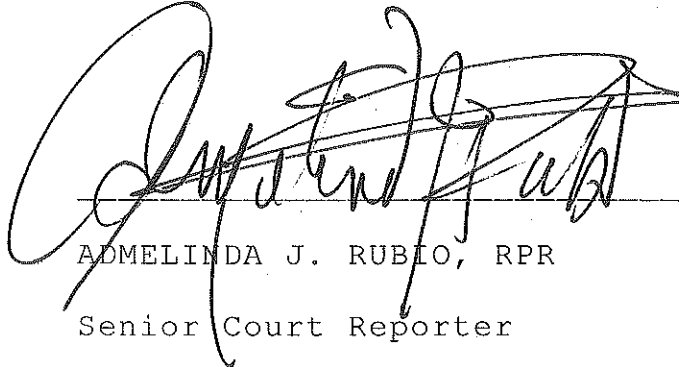 ADMELINDA J. RUBIO, RPR
Senior Court Reporter